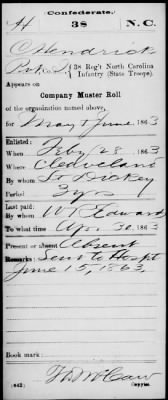 Confederate.
H 38 N.C.
C Hendrick
Pvt, Co. , 38 Reg't North Carolina
Infantry (State Troops).
Appears on
Company Muster Roll
of the organization named above,
for May & June, 1863
Enlisted:
When Feby 28, 1863
Where Cleaveland
By whom Lt Dickey
Period 3 yrs
Last paid:
By whom W T Edwards
To what time Apr 30, 1863
Present or absent Absent
Remarks: Sent to Hospt
June 15, 1863.
Book mark:
(642) Copyist.